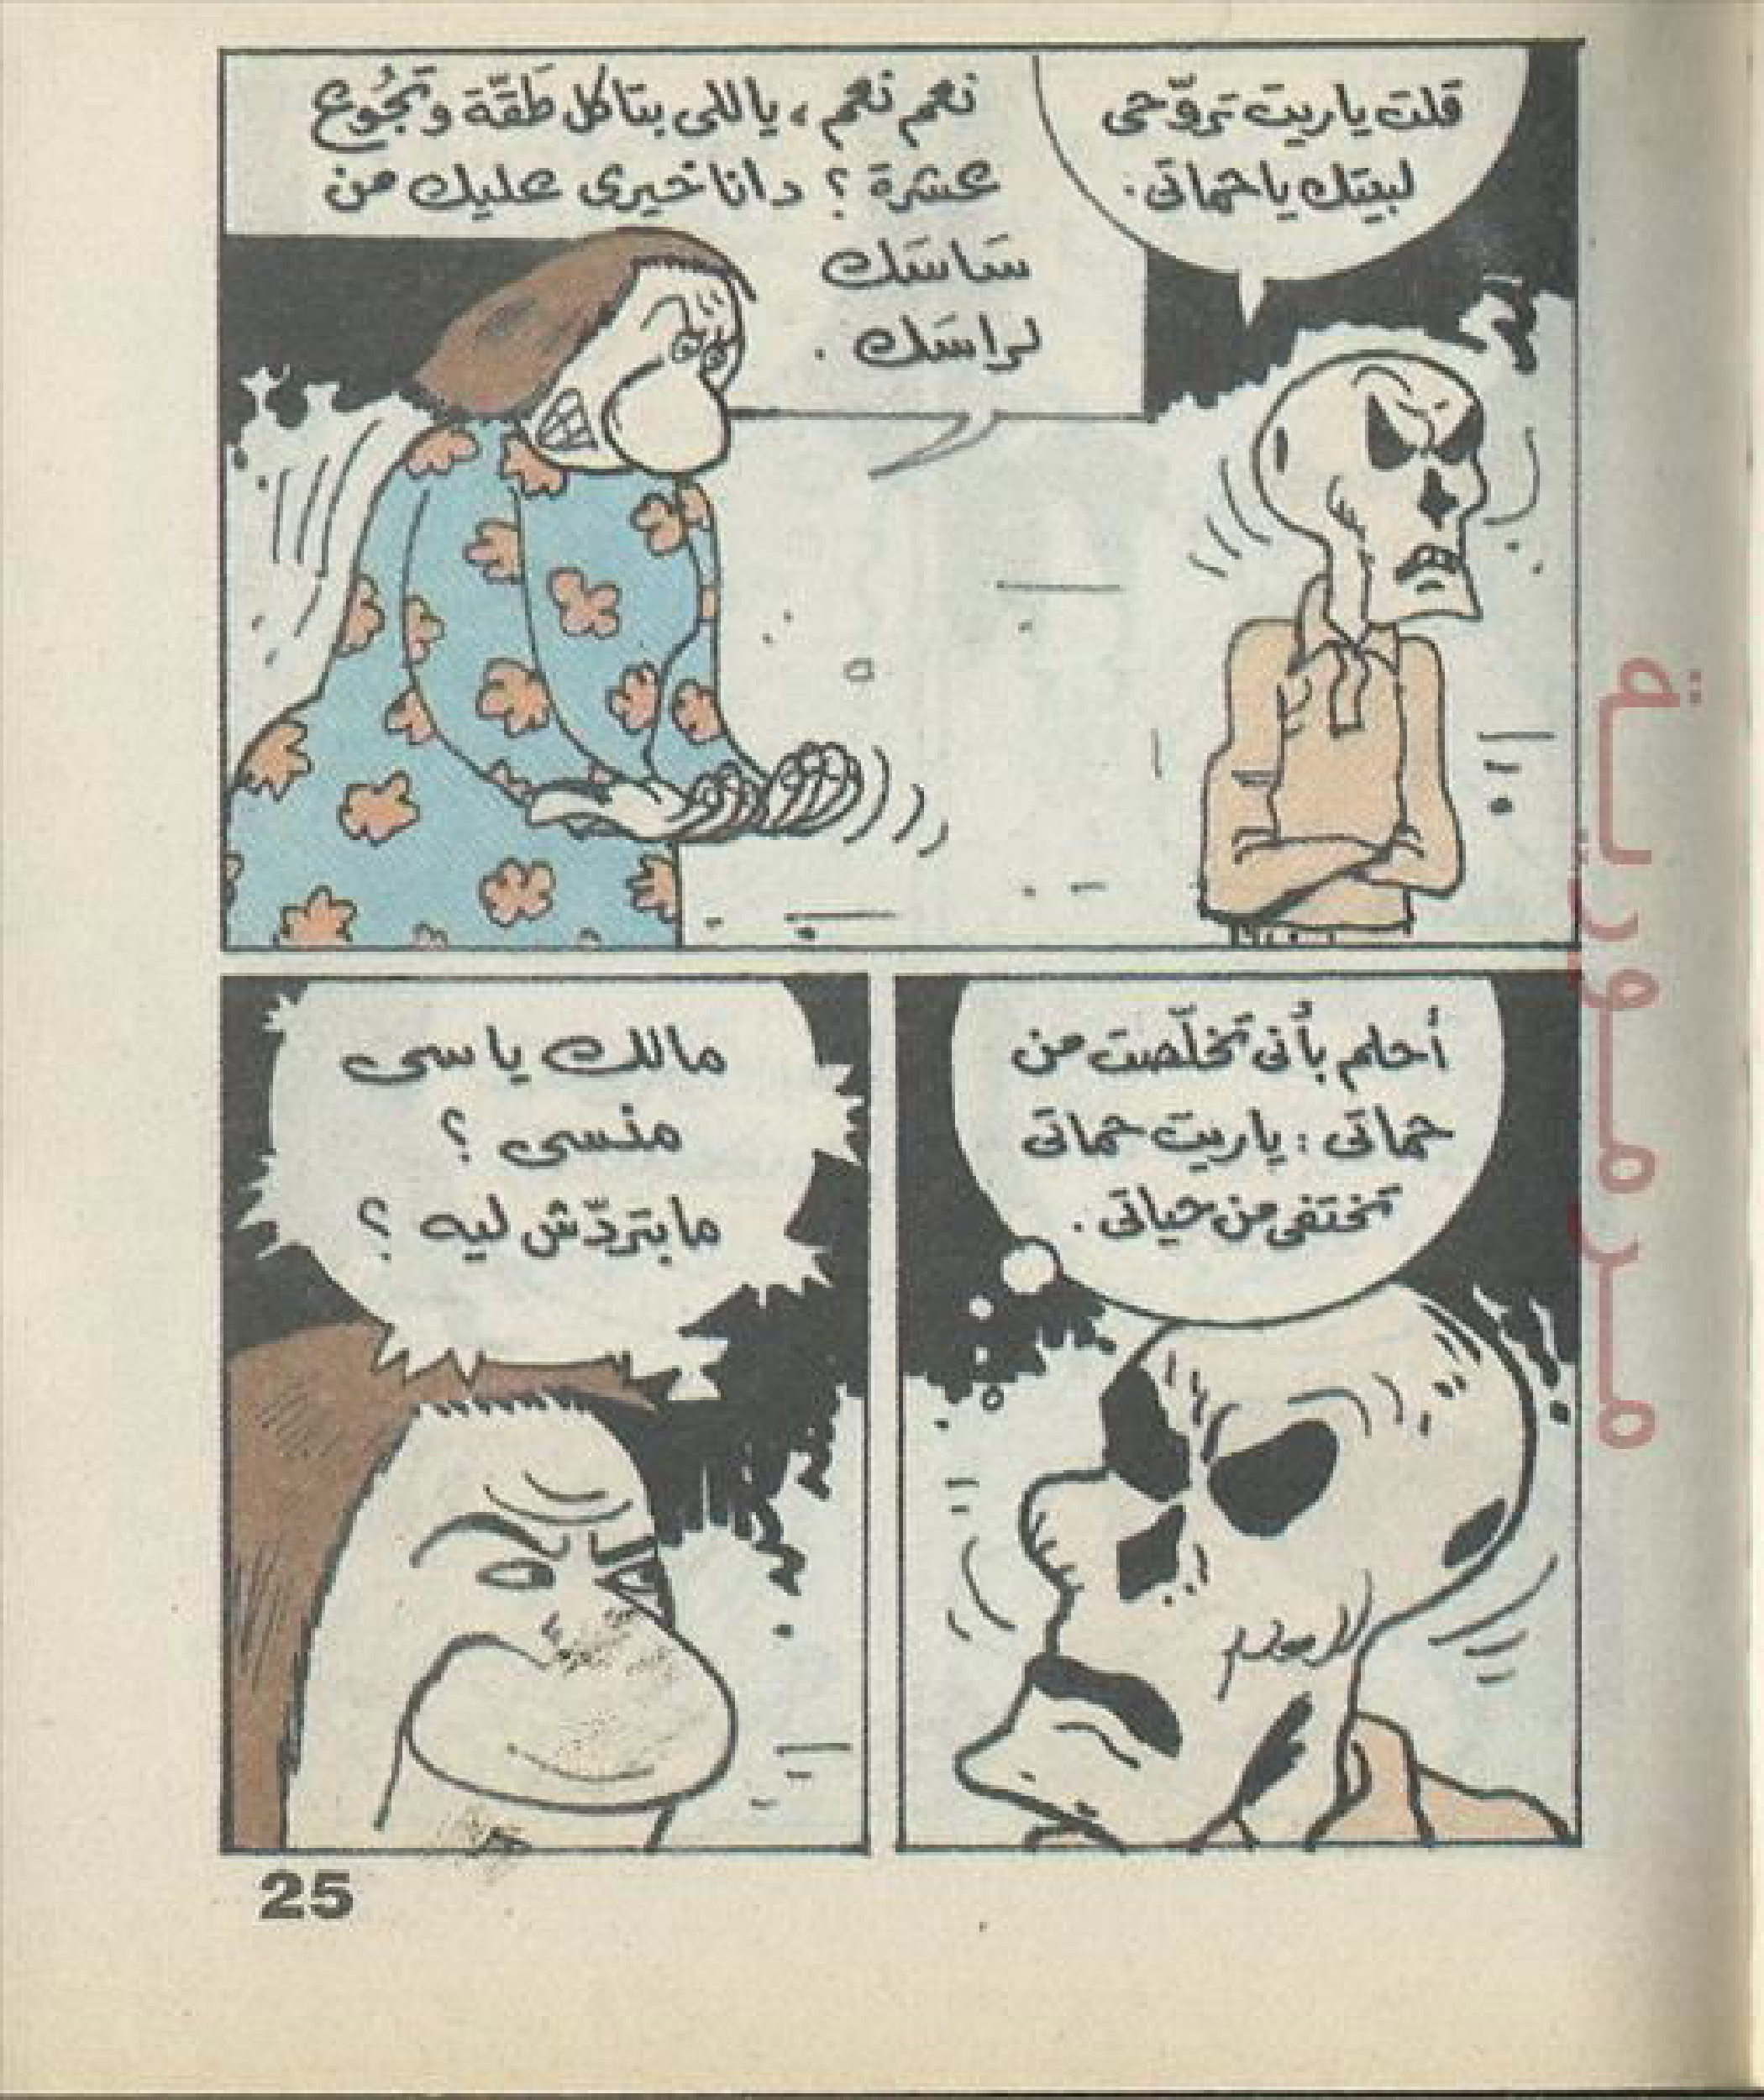 قلت ياريت تروّحى
لبيتك يا حماتى.
نعم نعم، ياللى بتاكل طَقّة وتجُوع
عشرة؟ دانا خيرى عليك من
سَاسَك
لراسَك.
أحلم بأنى تخلّصت من
حماتى: ياريت حماتى
تختفى من حياتى.
مالك ياسى
منسى؟
مابتردّش ليه؟
25